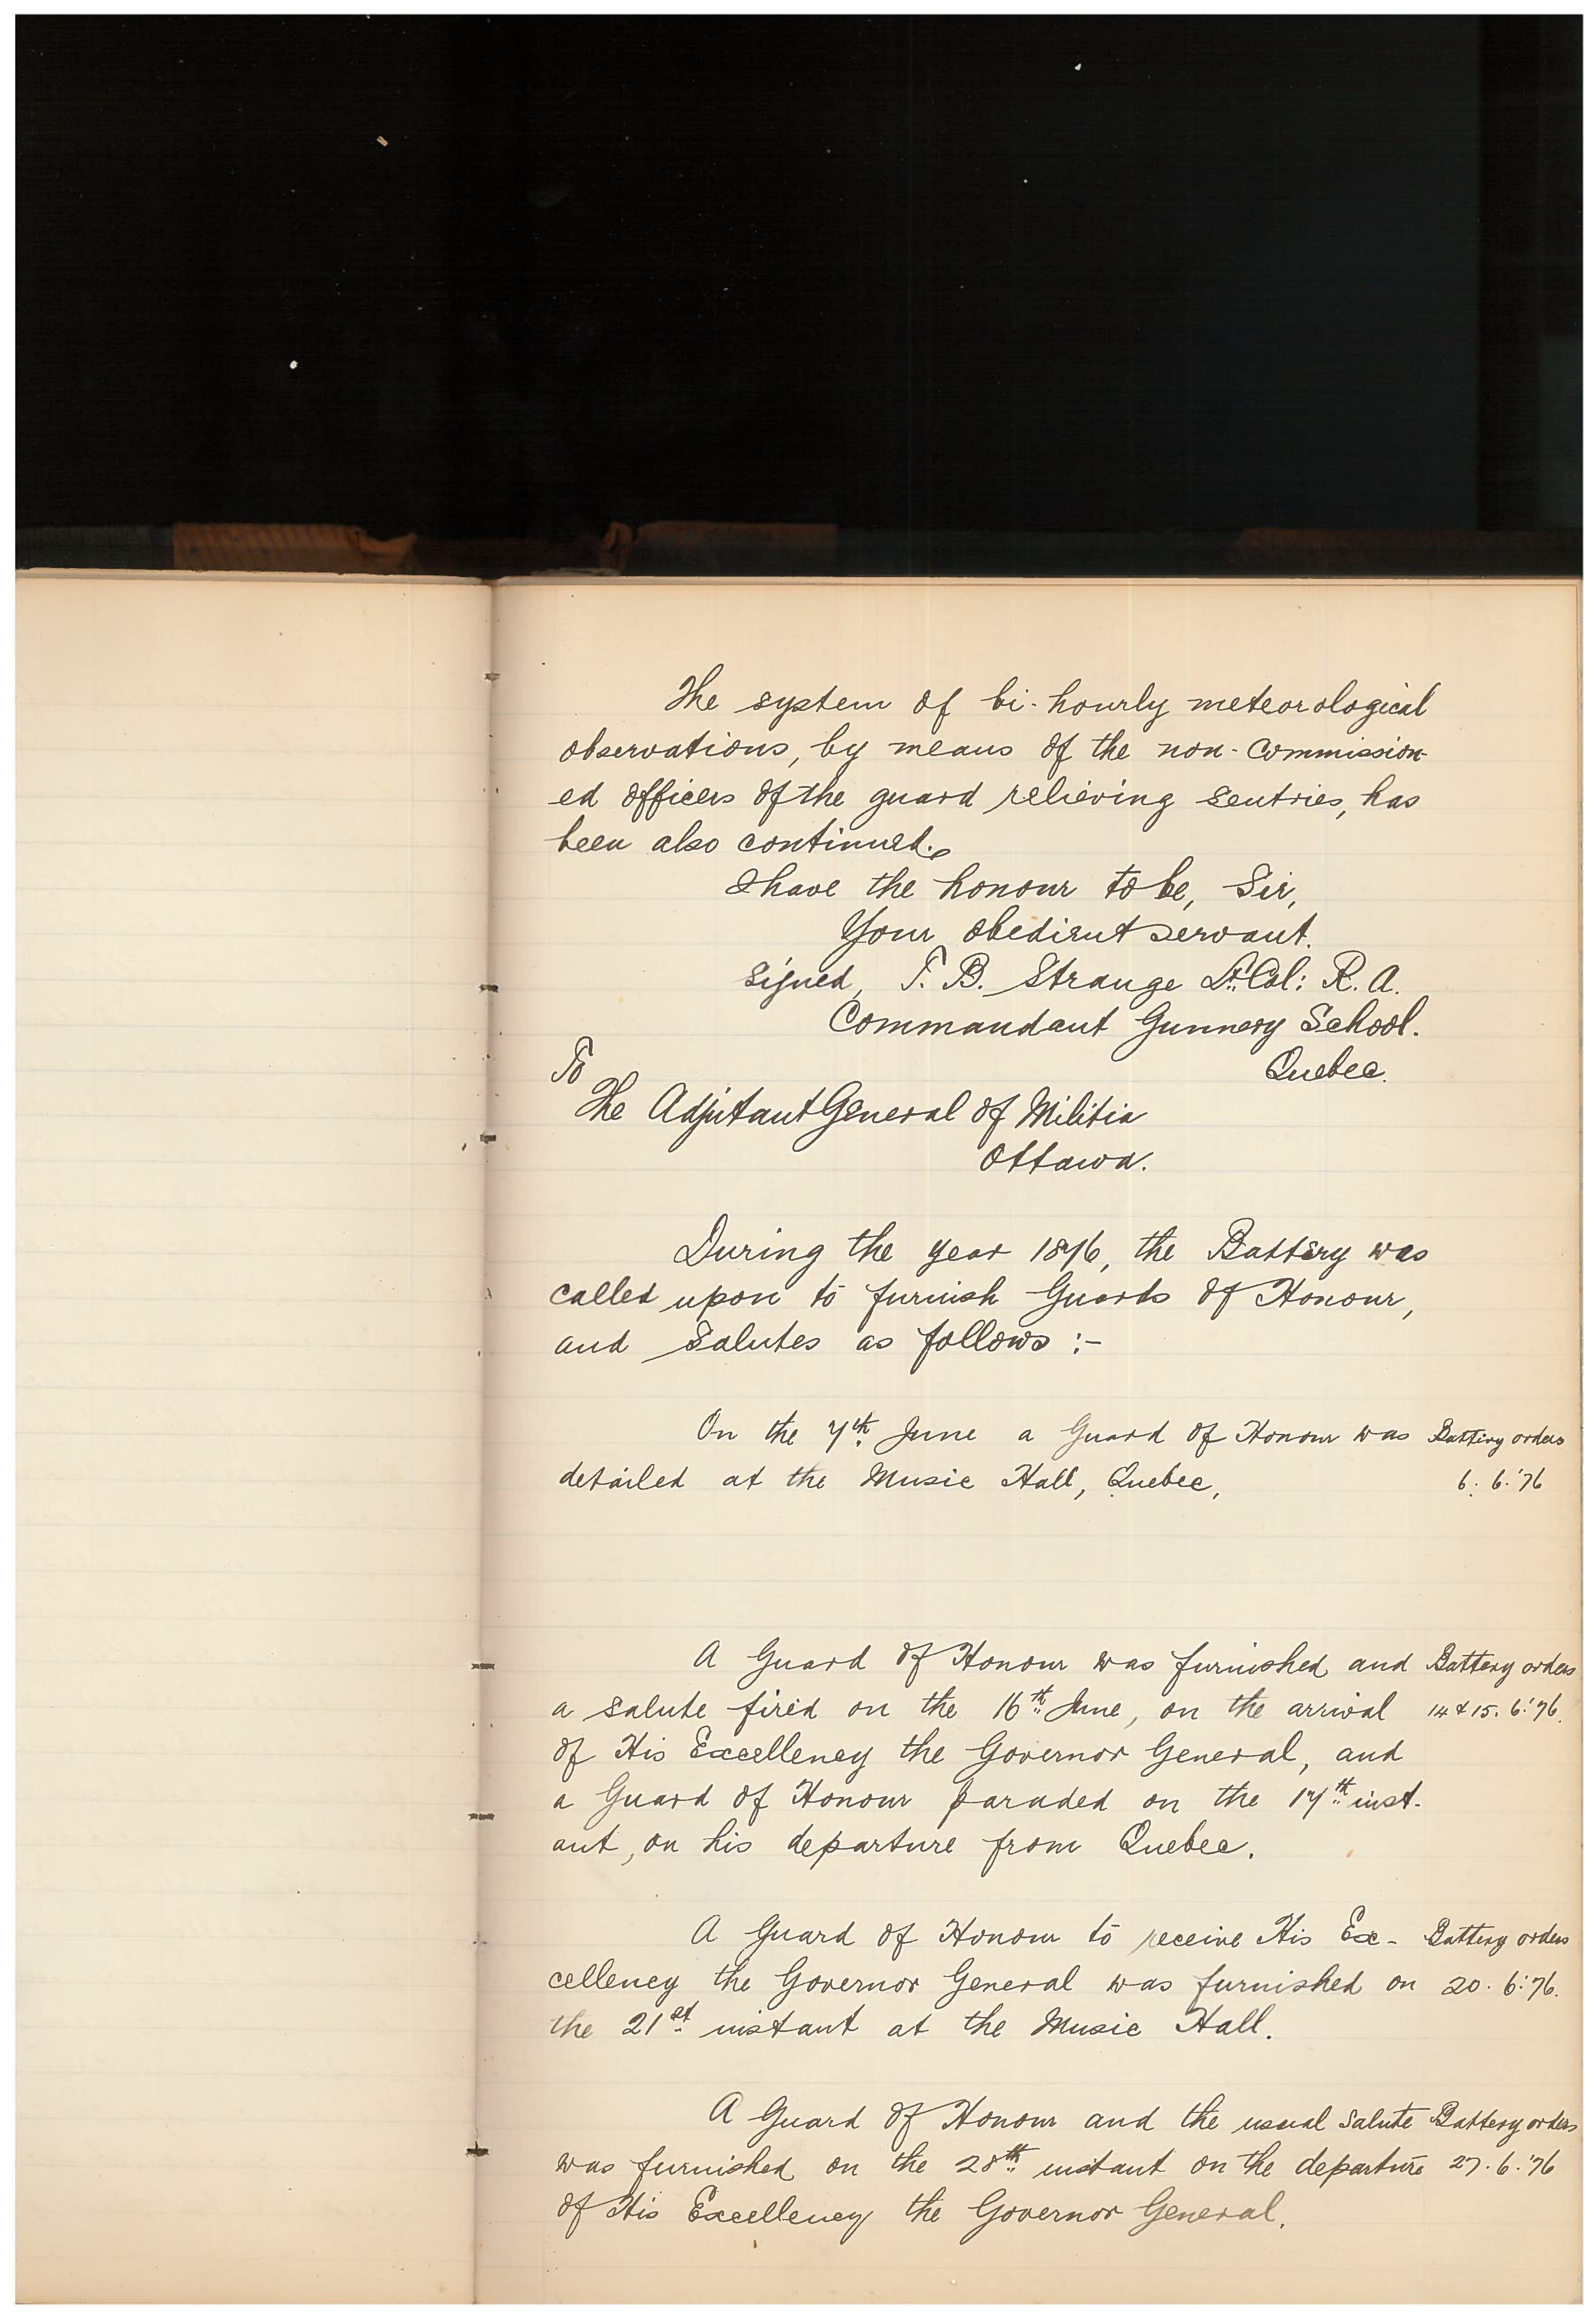 The system of bi-hourly meteorological
observations, by means of the non-commission-
ed officers of the guard relieving sentries, has
been also continued.
I have the honour to be, Sir,
Your obedient servant.
signed, T. B. Strange Lt. Col: R. A.
Commandant Gunnery School.
Quebec.
To
The Adjutant General of Militia
Ottawa.
During the year 1876, the Battery was
called upon to furnish Guards of Honour,
and salutes as follows :-
On the 7th June a Guard of Honour was Battery orders
detailed at the Music Hall, Quebec, 6. 6. '76
A Guard of Honour was furnished and Battery orders
a salute fired on the 16th June, on the arrival 14 & 15. 6. '76.
of His Excellency the Governor General, and
a Guard of Honour paraded on the 17th inst-
ant, on his departure from Quebec.
A Guard of Honour to receive His Ex- Battery orders
cellency the Governor General was furnished on 20. 6. '76.
the 21st instant at the Music Hall.
A Guard of Honour and the usual salute Battery orders
was furnished on the 28th instant on the departure 27. 6. '76
of His Excellency the Governor General.